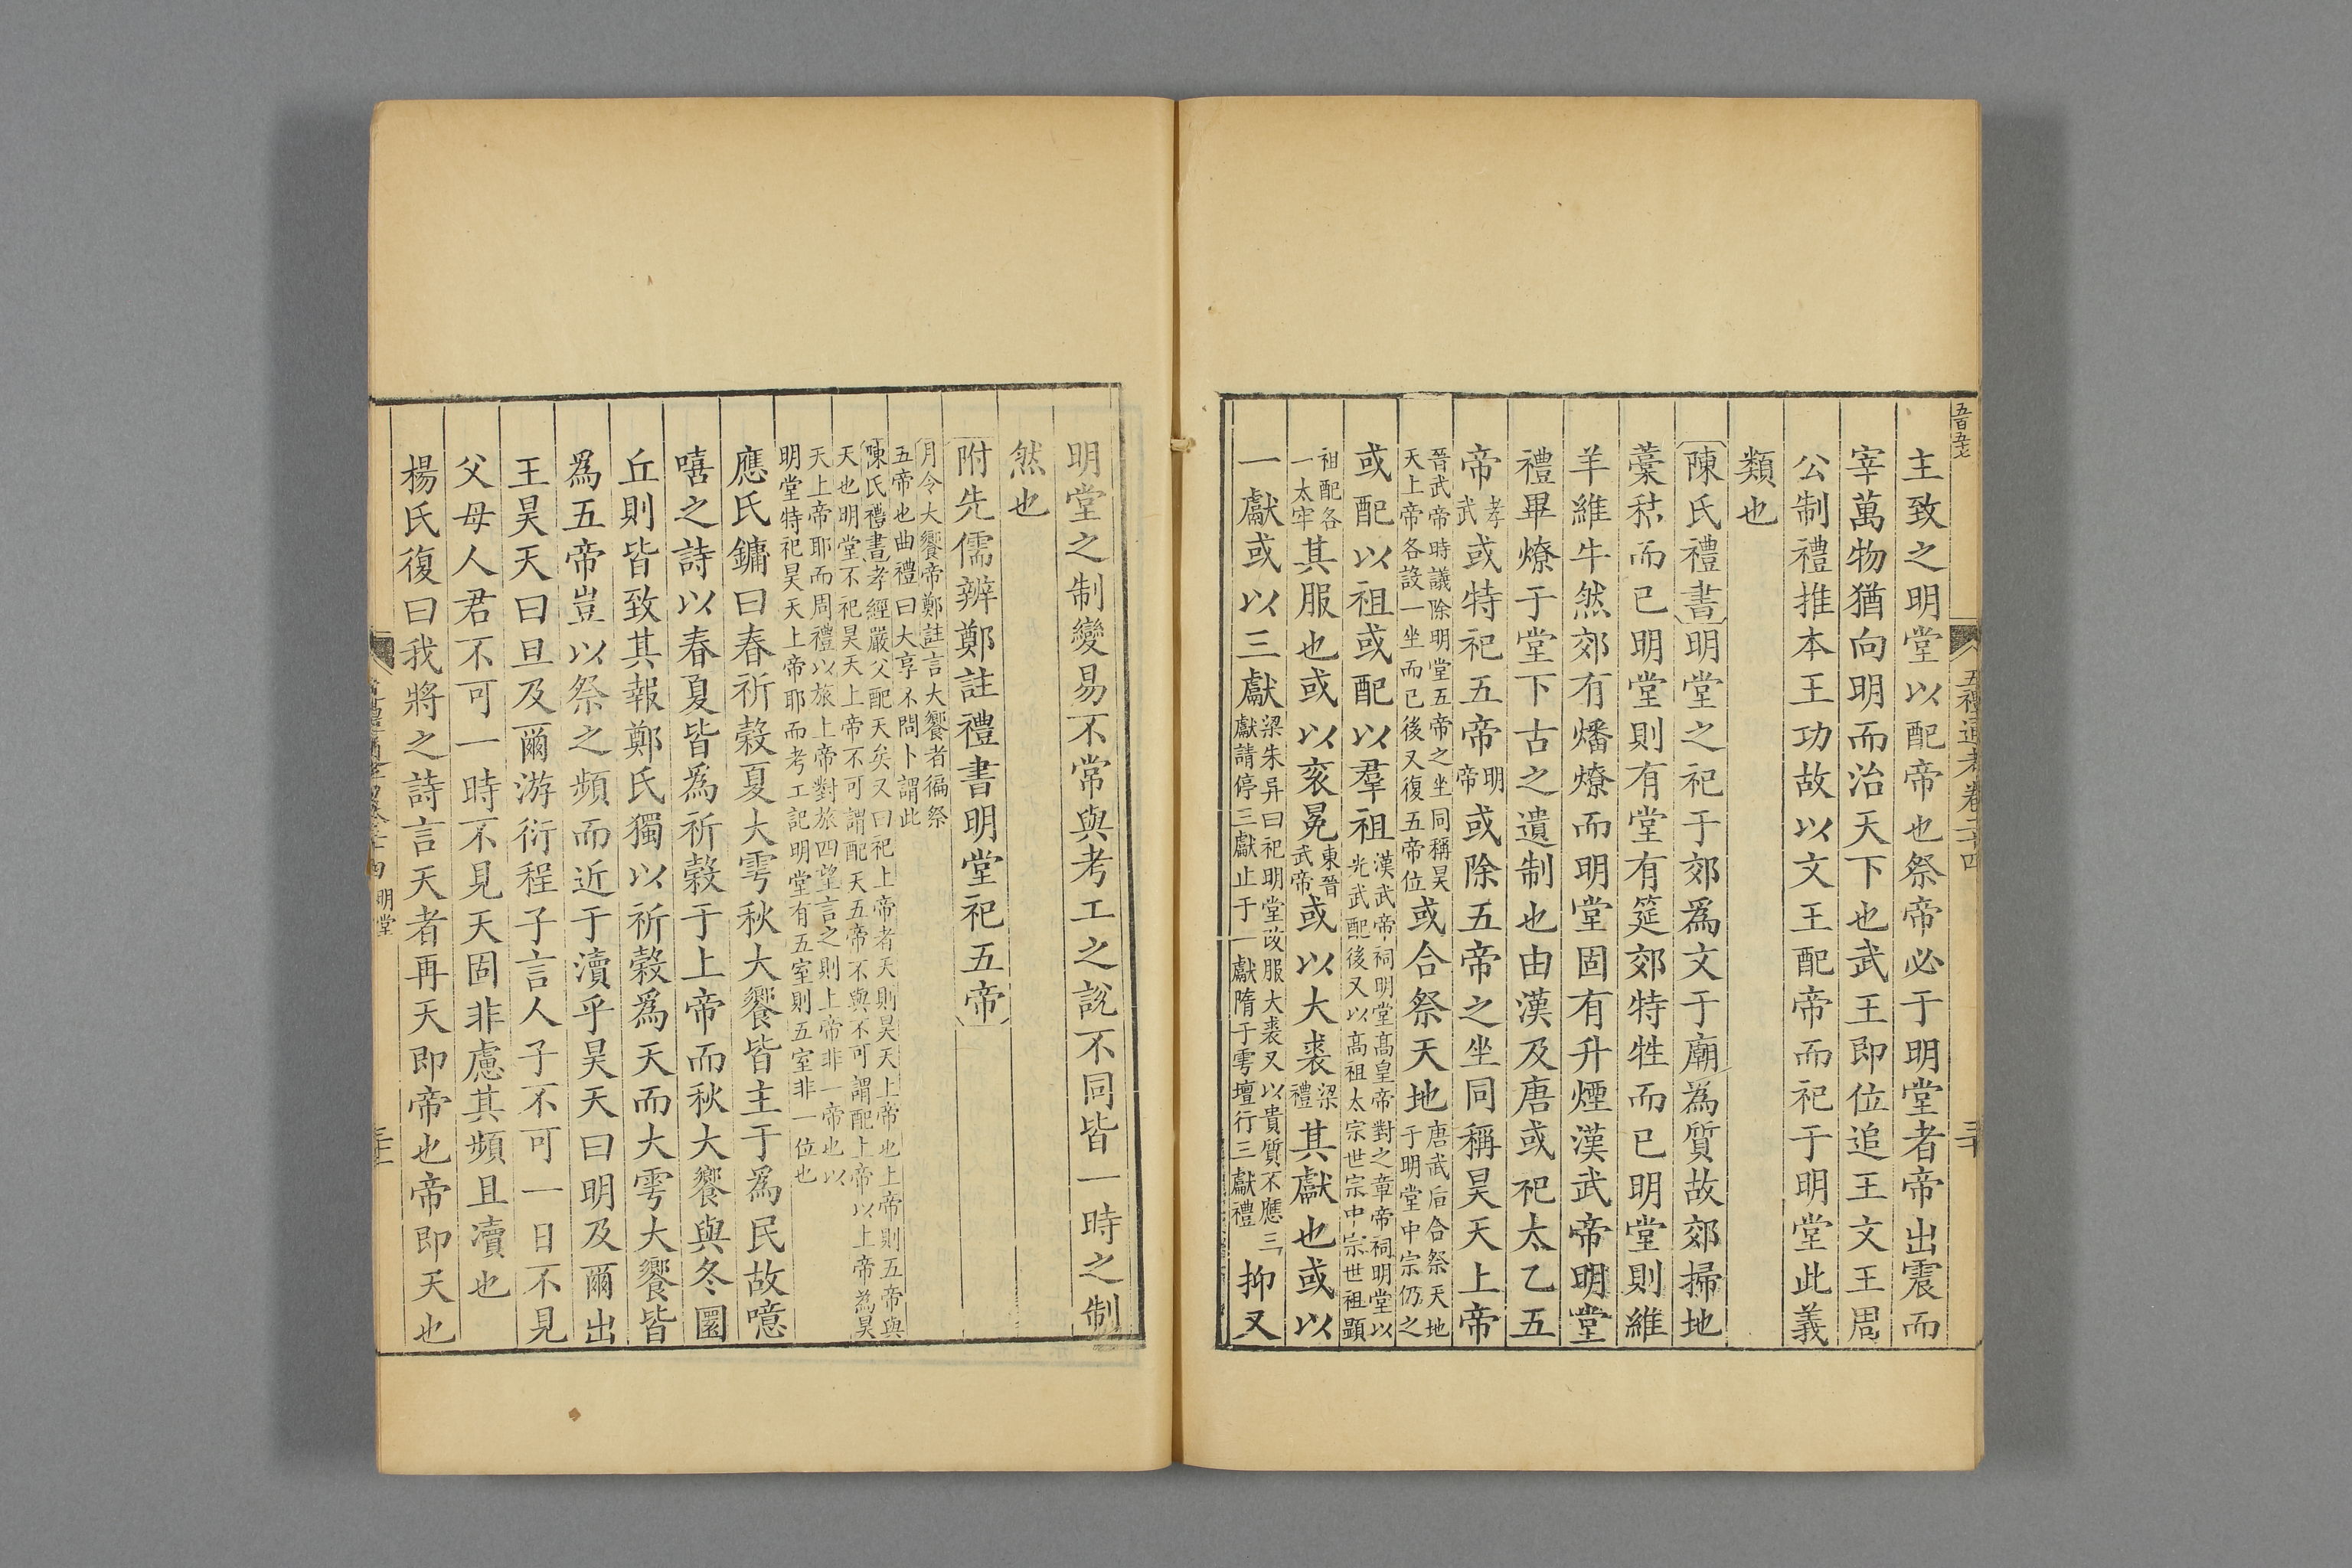 五百五七
五禮通考卷二十四
三十
主致之明堂以配帝也祭帝必于明堂者帝出震而
宰萬物猶向明而治天下也武王即位追王文王周
公制禮推本王功故以文王配帝而祀于明堂此義
類也
陳氏禮書明堂之祀于郊為文于廟為質故郊掃地
藁秸而已明堂則有堂有筵郊特牲而已明堂則維
羊維牛然郊有燔燎而明堂固有升煙漢武帝明堂
禮畢燎于堂下古之遺制也由漢及唐或祀太乙五
帝孝武或特祀五帝明帝或除五帝之坐同稱昊天上帝
晉武帝時議除明堂五帝之坐同稱昊天上帝各設一坐而已後又復五帝位或合祭天地唐武后合祭天地于明堂中宗仍之
或配以祖或配以羣祖漢武帝祠明堂高皇帝對之章帝祠明堂以光武配後又以高祖太宗世宗中宗世祖顯
祖配各一太牢其服也或以衮冕東晉武帝或以大裘梁禮其獻也或以
一獻或以三獻梁朱异曰祀明堂改服大裘又以貴質不應三獻請停三獻止于一獻隋于雩壇行三獻禮抑又
明堂之制變易不常與考工之說不同皆一時之制
然也
附先儒辨鄭註禮書明堂祀五帝
月令大饗帝鄭註言大饗者徧祭五帝也曲禮曰大享不問卜謂此
陳氏禮書孝經嚴父配天矣又曰祀上帝者天則昊天上帝也上帝則五帝與天也明堂不祀昊天上帝不可謂配天五帝不與不可謂配上帝以上帝為昊
天上帝耶而周禮以旅上帝對旅四望言之則上帝非一帝也以明堂特祀昊天上帝耶而考工記明堂有五室則五室非一位也
應氏鏞曰春祈穀夏大雩秋大饗皆主于為民故噫
嘻之詩以春夏皆爲祈穀于上帝而秋大饗與冬圜
丘則皆致其報鄭氏獨以祈穀爲天而大雩大饗皆
爲五帝豈以祭之頻而近于瀆乎昊天曰明及爾出
王昊天曰旦及爾游衍程子言人子不可一日不見
父母人君不可一時不見天固非慮其頻且瀆也
楊氏復曰我將之詩言天者再天即帝也帝即天也
明堂
三十一